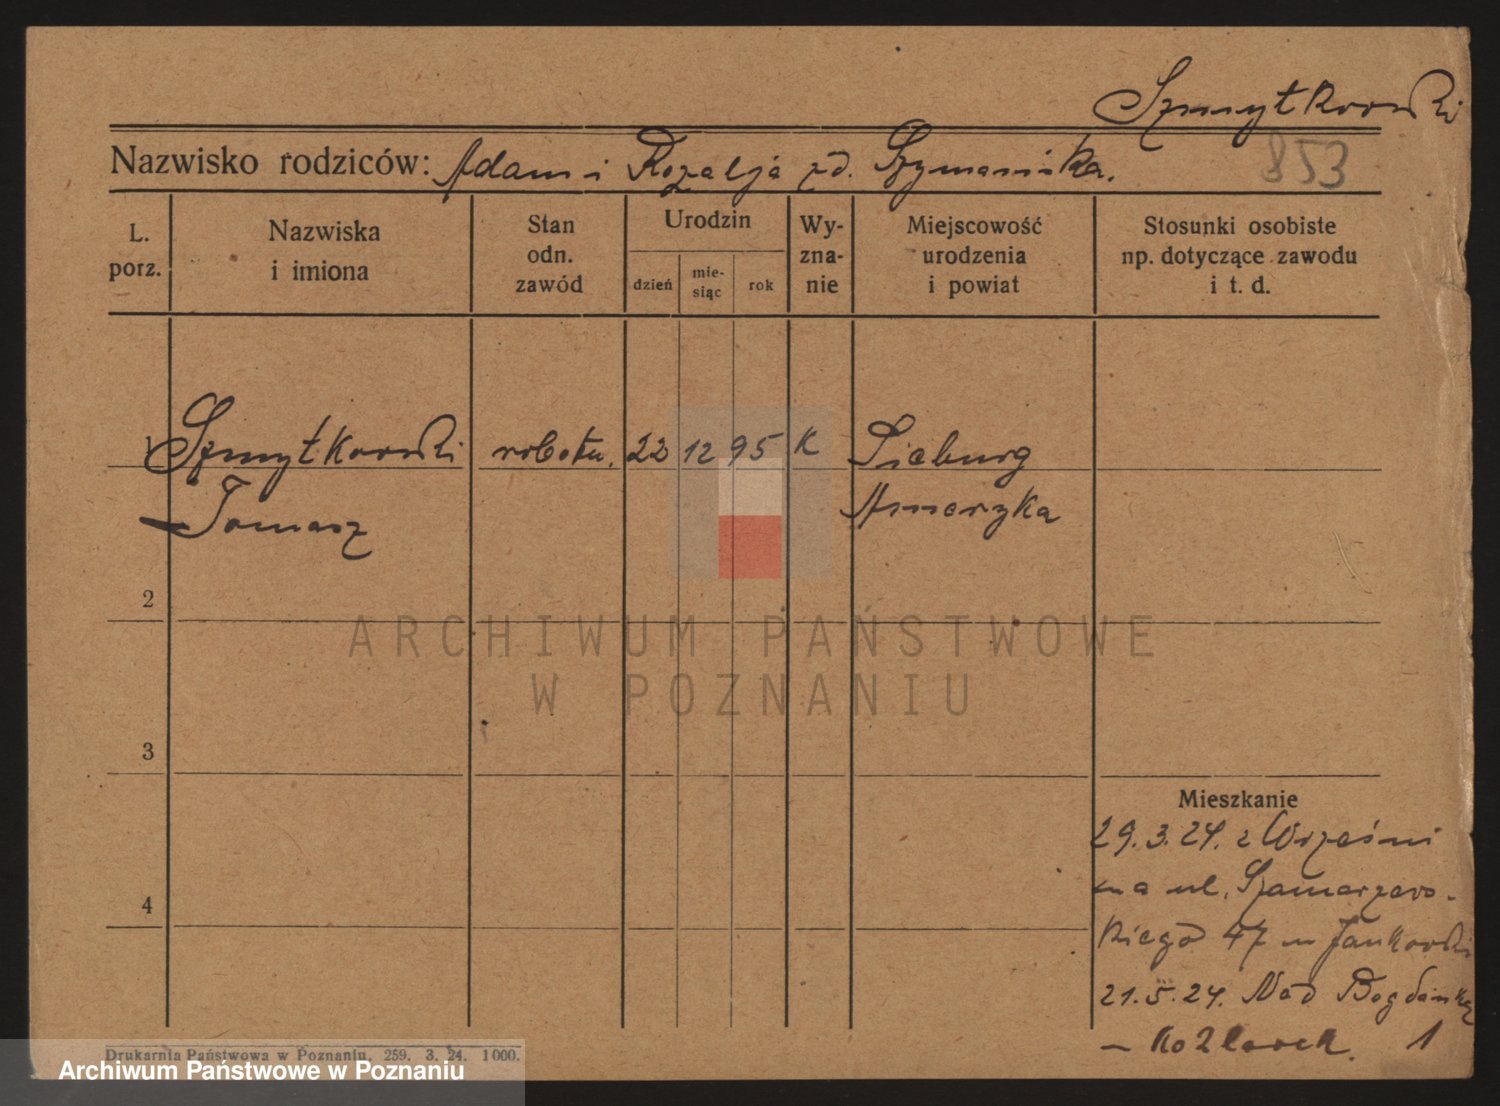 Szmytkowski
853
Nazwisko rodziców: Adam i Rozalja zd. Szymanska.
L. porz.
Nazwiska i imiona
Stan odn. zawód
Urodzin
dzień
mie-
siąc
rok
Wy-
zna-
nie
Miejscowość
urodzenia
i powiat
Stosunki osobiste
np. dotyczące zawodu
i t. d.
1 Szmytkowski robotn. 22 12 95 K Sieburg
Tomasz Ameryka
2
3
4
Mieszkanie
29.3.24. z Wrześni
na ul. Szamarzews-
kiego 47 u Jankowski
21.5.24. Nad Bogdanką
1
ARCHIWUM PAŃSTWOWE
W POZNANIU
Drukarnia Państwowa w Poznaniu, 259. 3. 24. 1000.
Archiwum Państwowe w Poznaniu